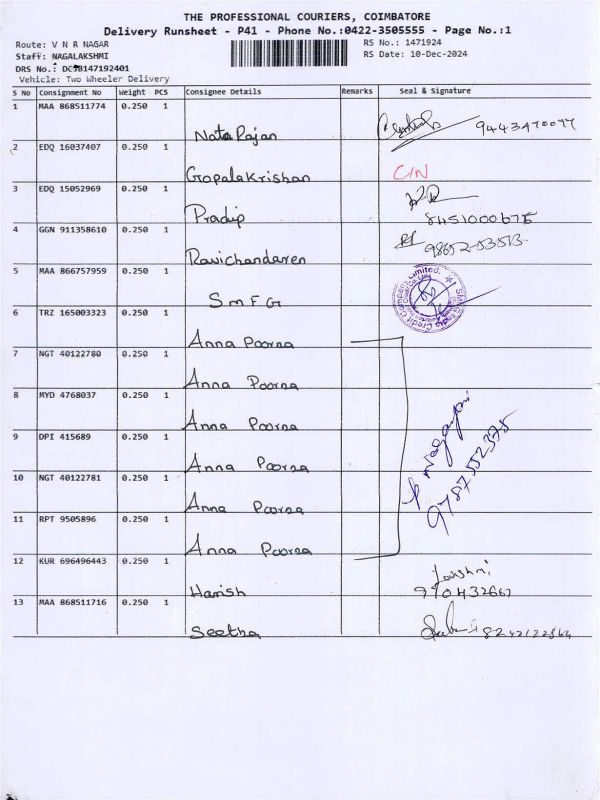 THE PROFESSIONAL COURIERS, COIMBATORE
Delivery Runsheet - P41 - Phone No.:0422-3505555 - Page No.:1
Route: V N R NAGAR
RS No.: 1471924
Staff: NAGALAKSHMI
RS Date: 10-Dec-2024
DRS No.: 147192401
Vehicle: Two Wheeler Delivery
S No Consignment No Weight PCS Consignee Details Remarks Seal & Signature
1 MAA 868511774 0.250 1
Nata Rajan 9443470077
2 EDQ 16037407 0.250 1
Gopalakrishan C/N
3 EDQ 15052969 0.250 1
Pradip 8451000675
4 GGN 911358610 0.250 1
Ravichandaren 98652-53513
5 MAA 866757959 0.250 1
SmFG
6 TRZ 165003323 0.250 1
Anna Poorna
7 NGT 40122780 0.250 1
Anna Poorna
8 MYD 4768037 0.250 1
Anna Poorna
9 DPI 415689 0.250 1
Anna Poorna
10 NGT 40122781 0.250 1
Anna Poorna
11 RPT 9505896 0.250 1
Anna Poorna
9787552375
12 KUR 696496443 0.250 1
Harish Lakshmi
13 MAA 868511716 0.250 1
Seetha